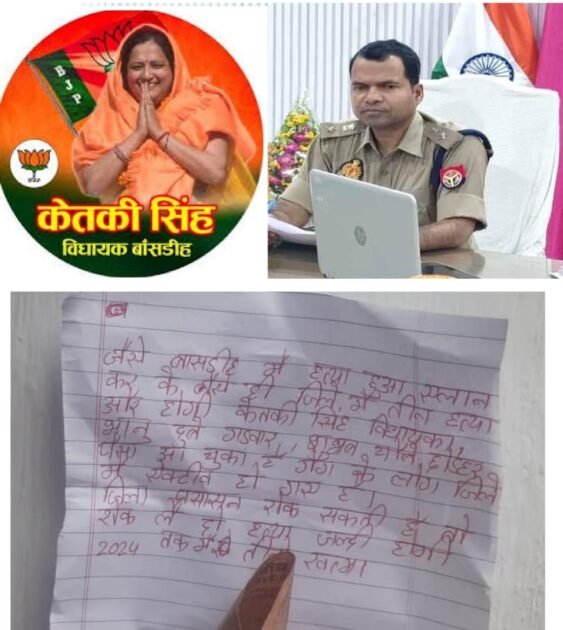 BJP
केतकी सिंह
विधायक बाँसडीह
जैसे बासडीह मे हत्या हुआ स्लान
कर के वैसे ही जिले मे तीन हत्या
और होगी केतकी सिंह विधायका,
भानु दुबे गडवार,
पैसा आ चुका है गैंग के लोग जिले
मे एक्टीव हो गए है।
जिला प्रसासन रोक सकती है तो
रोक ले हत्या जल्दी होगी
2024 तक मे तीनो खत्म।